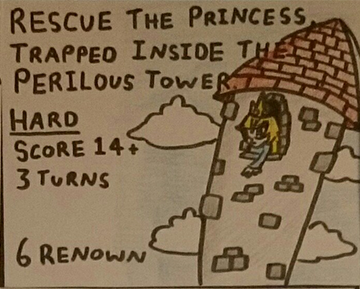 RESCUE THE PRINCESS,
TRAPPED INSIDE THE
PERILOUS TOWER.
HARD
SCORE 14+
3 TURNS
6 RENOWN